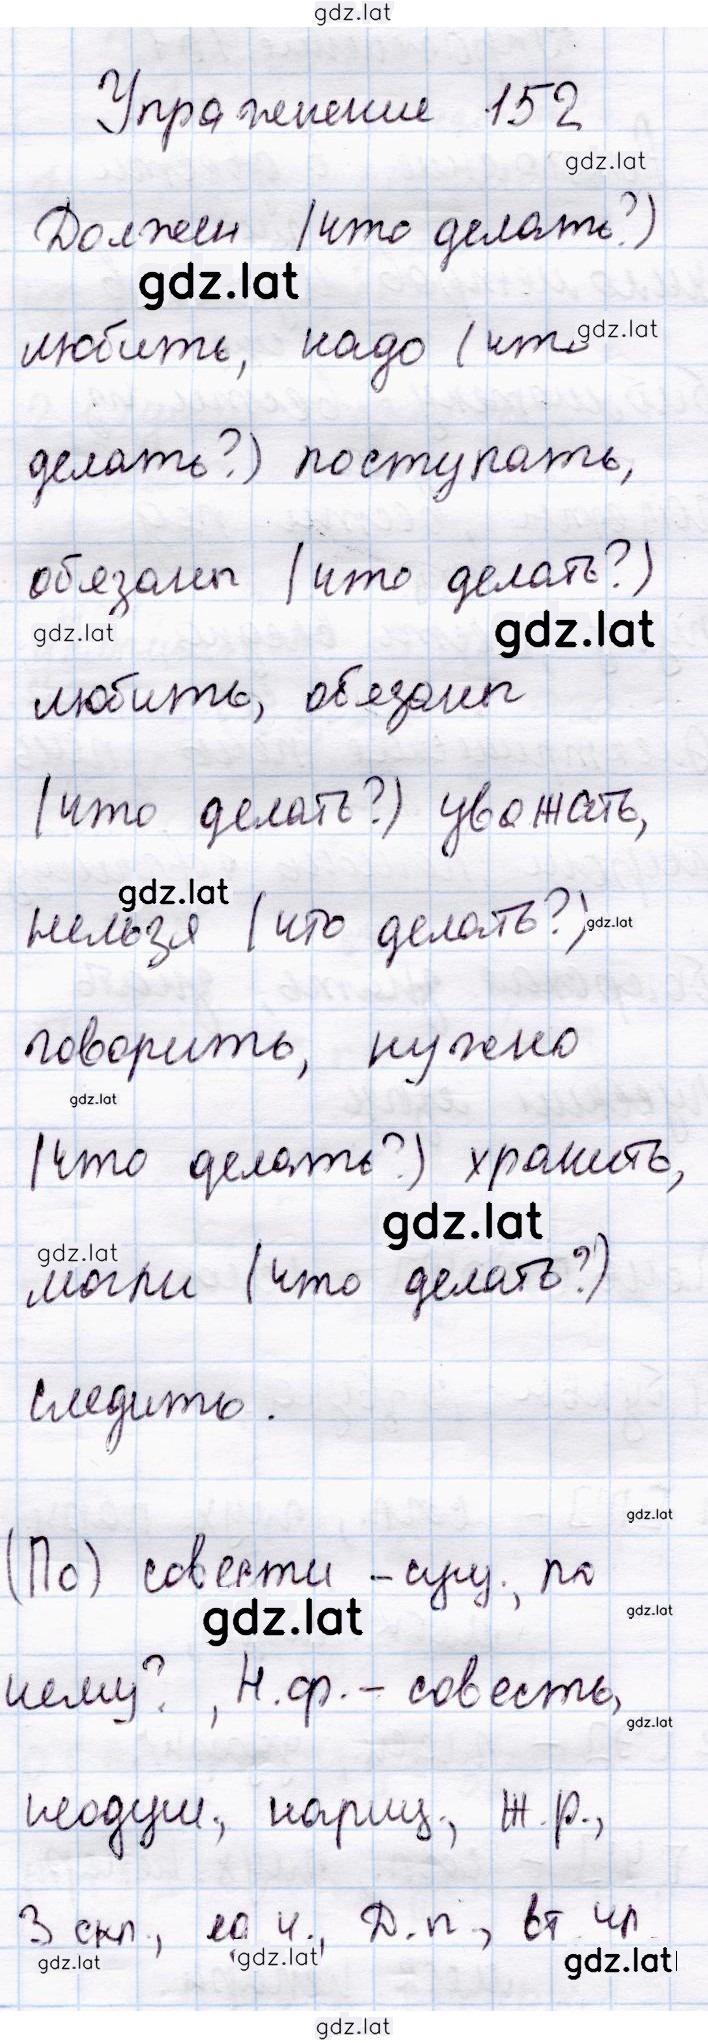 gdz.lat
Упражнение 152
gdz.lat
Должен (что делать?)
gdz.lat
любить, надо (что
gdz.lat
делать?) поступать,
обязаны (что делать?)
gdz.lat
gdz.lat
любить, обязаны
(что делать?) уважать,
gdz.lat
нельзя (что делать?)
gdz.lat
говорить, нужно
gdz.lat
(что делать?) хранить,
gdz.lat
gdz.lat
могли (что делать?)
следить.
gdz.lat
(По) совести – сущ., по
gdz.lat
gdz.lat
чему?, Н.ф. – совесть,
gdz.lat
неодуш., нариц., ж.р.,
3 скл., ед ч., Д.п., вт. чл.
gdz.lat
gdz.lat
gdz.lat
gdz.lat